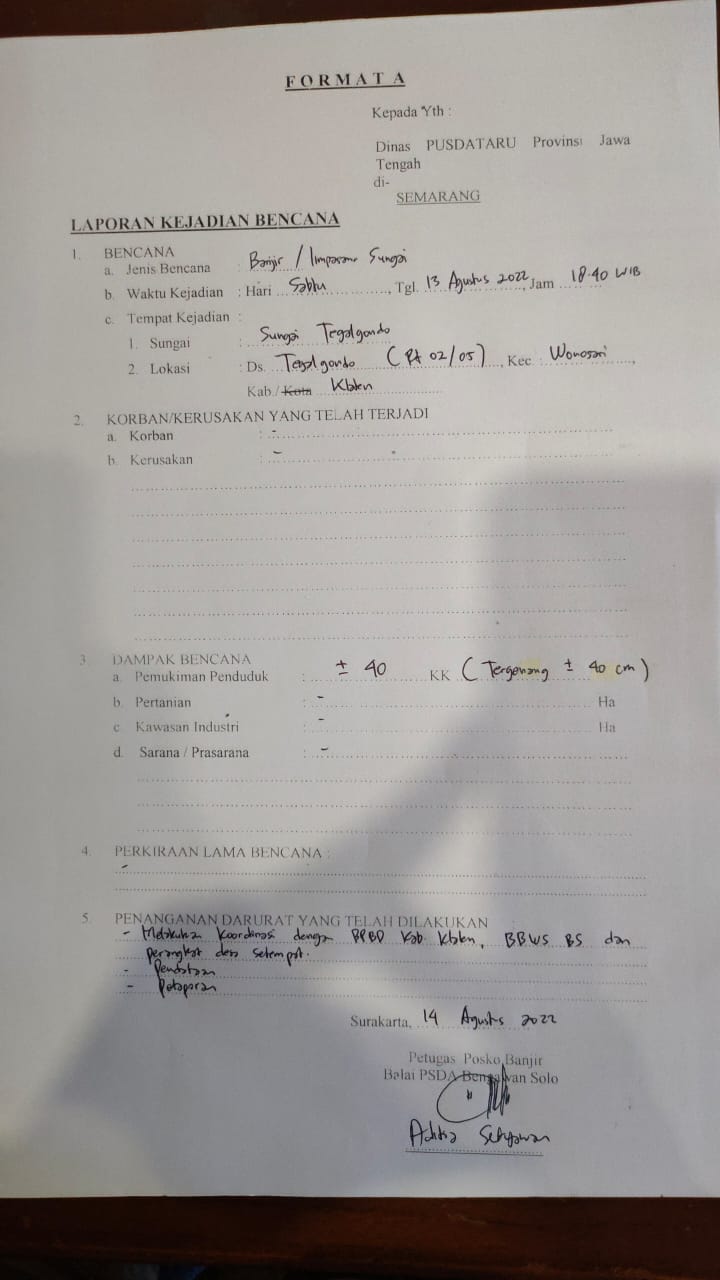 FORMAT A
Kepada Yth :
Dinas PUSDATARU Provinsi Jawa
Tengah
di-
SEMARANG
LAPORAN KEJADIAN BENCANA
1. BENCANA
a. Jenis Bencana : Banjir / limpasan Sungai
b. Waktu Kejadian : Hari Sabtu, Tgl. 13 Agustus 2022, Jam 18.40 WIB
c. Tempat Kejadian :
1. Sungai : Sungai Tegalgondo
2. Lokasi : Ds. Tegalgondo (Rt 02/05), Kec : Wonosari,
Kab./Kota Klaten
2. KORBAN/KERUSAKAN YANG TELAH TERJADI
a. Korban : -
b. Kerusakan : -
3. DAMPAK BENCANA
a. Pemukiman Penduduk : ± 40 KK (Tergenang ± 40 cm)
b. Pertanian : - Ha
c. Kawasan Industri : - Ha
d. Sarana / Prasarana : -
4. PERKIRAAN LAMA BENCANA :
-
5. PENANGANAN DARURAT YANG TELAH DILAKUKAN
- Melakukan Koordinasi dengan BPBD Kab. Klaten, BBWS BS dan
perangkat desa setempat.
- Pendataan
- Pelaporan
Surakarta, 14 Agustus 2022
Petugas Posko Banjir
Balai PSDA Bengawan Solo
Aditia Setyawan